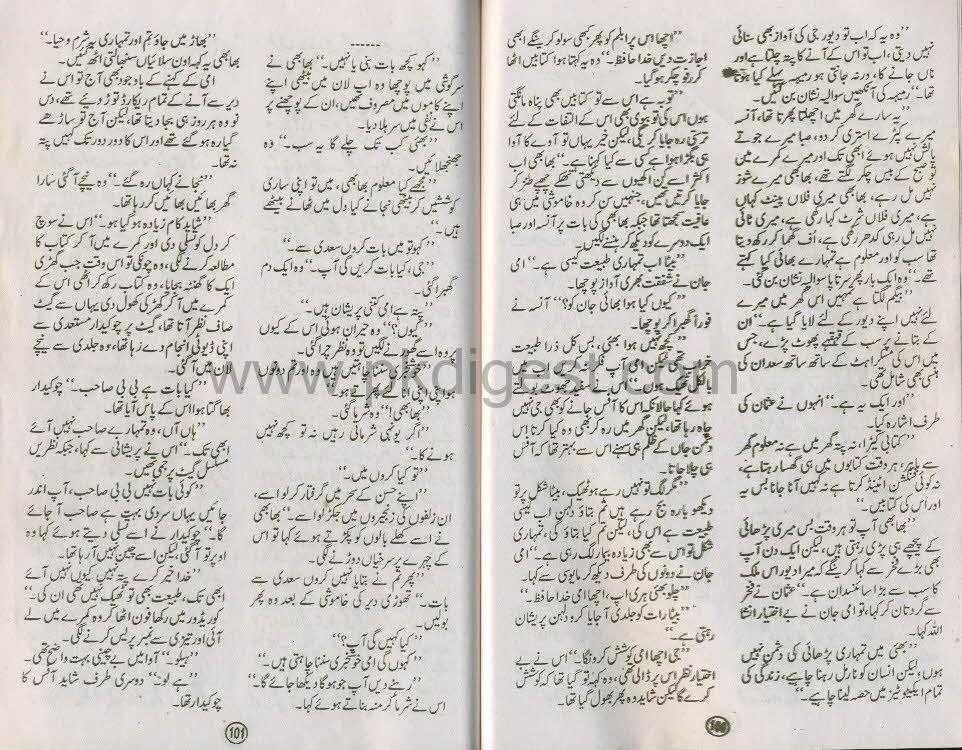 ’’وہ یہ کہ اب تو دیور جی کی آواز بھی سنائی
نہیں دیتی، اب تو اس کے آنے کا پتہ چلتا ہے اور
ناں جانے کا، ورنہ جانتی ہو رمیصہ پہلے کیا ہوتا
تھا۔‘‘ رمیصہ کی آنکھیں سوالیہ نشان بن گئیں۔
’’یہ سارے گھر میں اچھلتا پھرتا تھا، آنسہ
میرے کپڑے استری کر دو، صبا میرے جوتے
پالش نہیں ہوئے ابھی تک اور میرے کمرے میں
تو صبح کے بیس چکر لگتے تھے، بھابھی میرے شوز
نہیں مل رہے، بھابھی میری فلاں پینٹ کہاں
ہے، میری فلاں شرٹ کہاں رکھی ہے، میری ٹائی
نہیں مل رہی کدھر رکھی ہے، اُف گھما کر رکھ دیتا
تھا سب کو اور معلوم ہے تمہارے بھائی کیا کہتے
تھے۔‘‘ وہ ایک بار پھر سراپا سوالیہ نشان بن گئی۔
’’بیگم لگتا ہے تمہیں اس گھر میں میرے
لئے نہیں اپنے دیور کے لئے لایا گیا ہے۔‘‘ ان
کے بتانے پر سب کے قہقہے پھوٹ پڑے، جس
میں اس کی مسکراہٹ کے ساتھ ساتھ سعدان کی
ہنسی بھی شامل تھی۔
’’اور ایک یہ ہے۔‘‘ انہوں نے عثمان کی
طرف اشارہ کیا۔
’’کتابی کیڑا، نہ پتہ گھر میں ہے نہ معلوم گھر
سے باہر، ہر وقت کتابوں میں ہی گھسا رہتا ہے،
نہ کوئی فنکشن اٹینڈ کرتا ہے نہ کہیں آنا جانا بس یہ
اور اس کی کتابیں۔‘‘
’’بھابھی آپ تو ہر وقت بس میری پڑھائی
کے پیچھے ہی پڑی رہتی ہیں، لیکن ایک دن آپ
بھی بڑے فخر سے کہا کرینگے کہ میرا دیور اس ملک
کا سب سے بڑا سائنسدان ہے۔‘‘ عثمان نے فخر
سے گردتان کر کہا، تو امی جان نے بے اختیار انشا
اللہ کہا۔
’’بھئی میں تمہاری پڑھائی کی دشمن نہیں
ہوں، لیکن انسان کو نارمل رہنا چاہیے، زندگی کی
تمام ایکٹیوٹیز میں حصہ لینا چاہیے۔‘‘
’’اچھا اس پرابلم کو پھر بھی سولو کرینگے ابھی
اجازت دیں خدا حافظ۔‘‘ وہ یہ کہتا ہوا کتابیں اٹھا
کر نو چکر ہو گیا۔
’’توبہ ہے اس سے تو کتابیں بھی پناہ مانگتی
ہوں اس کی تو بیوی بھی اس کے التفات کے لئے
ترستی رہ جایا کریگی، لیکن خیر یہاں تو آوے کا آوا
ہی بگڑا ہوا ہے کسی سے کیا کہنا ہے۔‘‘ بھابھی اب
اکثر اسے کن اکھیوں سے دیکھتی تھکے چھپے طنز کر
جایا کرتیں تھیں، جنہیں سن کر وہ خاموشی میں ہی
عافیت سمجھتا تھا جبکہ بھابھی کی بات پر آنسہ اور صبا
ایک دوسرے کو دیکھ کر ہنسنے لگیں۔
’’بیٹا اب تمہاری طبیعت کیسی ہے۔‘‘ امی
جان نے شفقت بھری سے پوچھا۔
’’کیوں کیا ہوا بھائی جان کو؟‘‘ آنسہ نے
فوراً گھبرا کر پوچھا۔
’’کچھ نہیں ہوا بھئی، بس کل ذرا طبیعت
خراب تھی لیکن امی آپ فکر نہ کریں اب میں
بالکل ٹھیک ہوں۔‘‘
ہوئے کہا حالانکہ اس کا آفس جانے کو بھی جی نہیں
چاہ رہا تھا، لیکن گھر میں رہ کر بھی وہ کیا کرتا اس
دشمن جاں کے ظلم ہی سہنے اس سے بہتر تھا کہ آفس
ہی چلا جاتا۔
’’مگر لگ تو نہیں رہے ہو ٹھیک، بیٹا شکل پر تو
دیکھو بارہ بج رہے ہیں تم بتاؤ دلہن اب کیسی
طبیعت ہے اس کی، لیکن تم کیا بتاؤ کی، تمہاری
شکل تو اس سے بھی زیادہ بیمار لگ رہی ہے۔‘‘ امی
جان نے دونوں کی طرف دیکھ کر مایوسی سے کہا۔
’’چلو بھئی ہری اپ، اچھا امی خدا حافظ۔‘‘
’’بیٹا رات کو جلدی آ جایا کرو دلہن پریشان
رہتی ہے۔‘‘
’’جی اچھا امی کوشش کرونگا۔‘‘ اس نے بے
اختیار نظر اس پر ڈالی تھی، وہ کہہ تو گیا تھا کہ کوشش
کرے گا لیکن شاید وہ پھر بھول گیا تھا۔
100
------
’’کہو کچھ بات بنی یا نہیں۔‘‘ بھابھی نے
سرگوشی میں پوچھا وہ اب لان میں بیٹھی اپنے
اپنے کاموں میں مصروف تھیں، ان کے پوچھنے پر
اس نے نفی میں سر ہلا دیا۔
’’بھئی کب تک چلے گا یہ سب۔‘‘ وہ
جھنجھلائیں۔
’’مجھے کیا معلوم بھابھی، میں تو اپنی ساری
کوششیں کر بیٹھی نجانے کیا دل میں ٹھانے بیٹھے
ہیں۔‘‘
’’کہو تو میں بات کروں سعدی سے۔‘‘
’’جی، کیا بات کریں گی آپ۔‘‘ وہ ایک دم
گھبرا گئی۔
’’پتہ ہے امی کتنی پریشان ہیں۔‘‘
’’کیوں؟‘‘ وہ حیران ہوئی اس کے کیوں
پر وہ اسے گھورنے لگیں تو وہ نظر چرا گئی۔
’’بھابھی!‘‘ وہ شرما گئی۔
’’اگر یونہی شرماتی رہیں نہ تو کچھ نہیں
ہونے کا۔‘‘
’’تو کیا کروں میں۔‘‘
’’اپنے حسن کے سحر میں گرفتار کر لو اسے،
ان زلفوں کی زنجیروں میں جکڑ لو اسے۔‘‘ بھابھی
نے اسے کھلے بالوں کو پکڑتے ہوئے کہا تو اس
کے چہرے پر سرخیاں دوڑنے لگی۔
’’پھر تم نے بتایا نہیں کروں سعدی سے
بات۔‘‘ تھوڑی دیر کی خاموشی کے بعد وہ پھر
بولیں۔
’’کیا کہیں گی آپ؟‘‘
’’کہوں گی امی خوشخبری سننا چاہتی ہیں۔‘‘
’’رہنے دیں آپ جو ہو گا دیکھا جائے گا۔‘‘
اس نے شرما کر منہ بناتے ہوئے کہا۔
’’بھاڑ میں جاؤ تم اور تمہاری یہ شرم و حیا۔‘‘
بھابھی یہ کہہ اون سلائیاں سنبھالتی اٹھ گئیں۔
امی کے کہنے کے باوجود بھی آج تو اس نے
دیر سے آنے کے تمام ریکارڈ توڑ دیئے تھے، دس
نو وہ ہر روز ہی بجا دیتا تھا، لیکن آج تو ساڑھے
گیارہ ہو گئے تھے اور اس کا دور دور تک کہیں پتہ
نہ تھا۔
’’نجانے کہاں رہ گئے۔‘‘ وہ نیچے آ گئی سارا
گھر بھائیں بھائیں کر رہا تھا۔
’’شاید کام زیادہ ہو گیا ہو۔‘‘ اس نے سوچ
کر دل کو تسلی دی اور کمرے میں آ کر کتاب کا
مطالعہ کرنے لگی، وہ چونکی تو اس وقت جب گھڑی
ایک کا گھنٹہ بجایا، وہ کتاب رکھ کر اٹھی اس کے
کمرے میں آ کر گھر کی کھڑکی کھول دی یہاں سے گیٹ
صاف نظر آتا تھا، گیٹ پر چوکیدار مستعدی سے
اپنی ڈیوٹی انجام دے رہا تھا، وہ جلدی سے نیچے
لان میں آ گئی۔
’’کیا بات ہے بی بی صاحب۔‘‘ چوکیدار
بھاگتا ہوا اس کے پاس آیا تھا۔
’’ہاں آں، وہ تمہارے صاحب نہیں آئے
ابھی تک۔‘‘ اس نے پریشانی سے کہا، جبکہ نظریں
مسلسل گیٹ پر جمی تھیں۔
’’کوئی بات نہیں بی بی صاحب، آپ اندر
جائیں یہاں سردی بہت ہے صاحب آ جائے
گا۔‘‘ چوکیدار نے اسے تسلی دیتے ہوئے کہا وہ
اوپر تو آ گئی لیکن اسے چین نہیں آ رہا تھا۔
’’خدا خیر کرے پتہ نہیں کیوں نہیں آئے
ابھی تک، طبیعت بھی تو ٹھیک نہیں تھی ان کی۔‘‘
کوریڈور میں رکھا فون اٹھا کر وہ کمرے میں لے
آئی اور تیزی سے نمبر پریس کرنے لگی۔
’’ہیلو۔‘‘ آواز میں بے چینی بہت واضح تھی۔
’’ہے لو۔‘‘ دوسری طرف شاید آفس کا
چوکیدار تھا۔
101
www.pkdigest.com